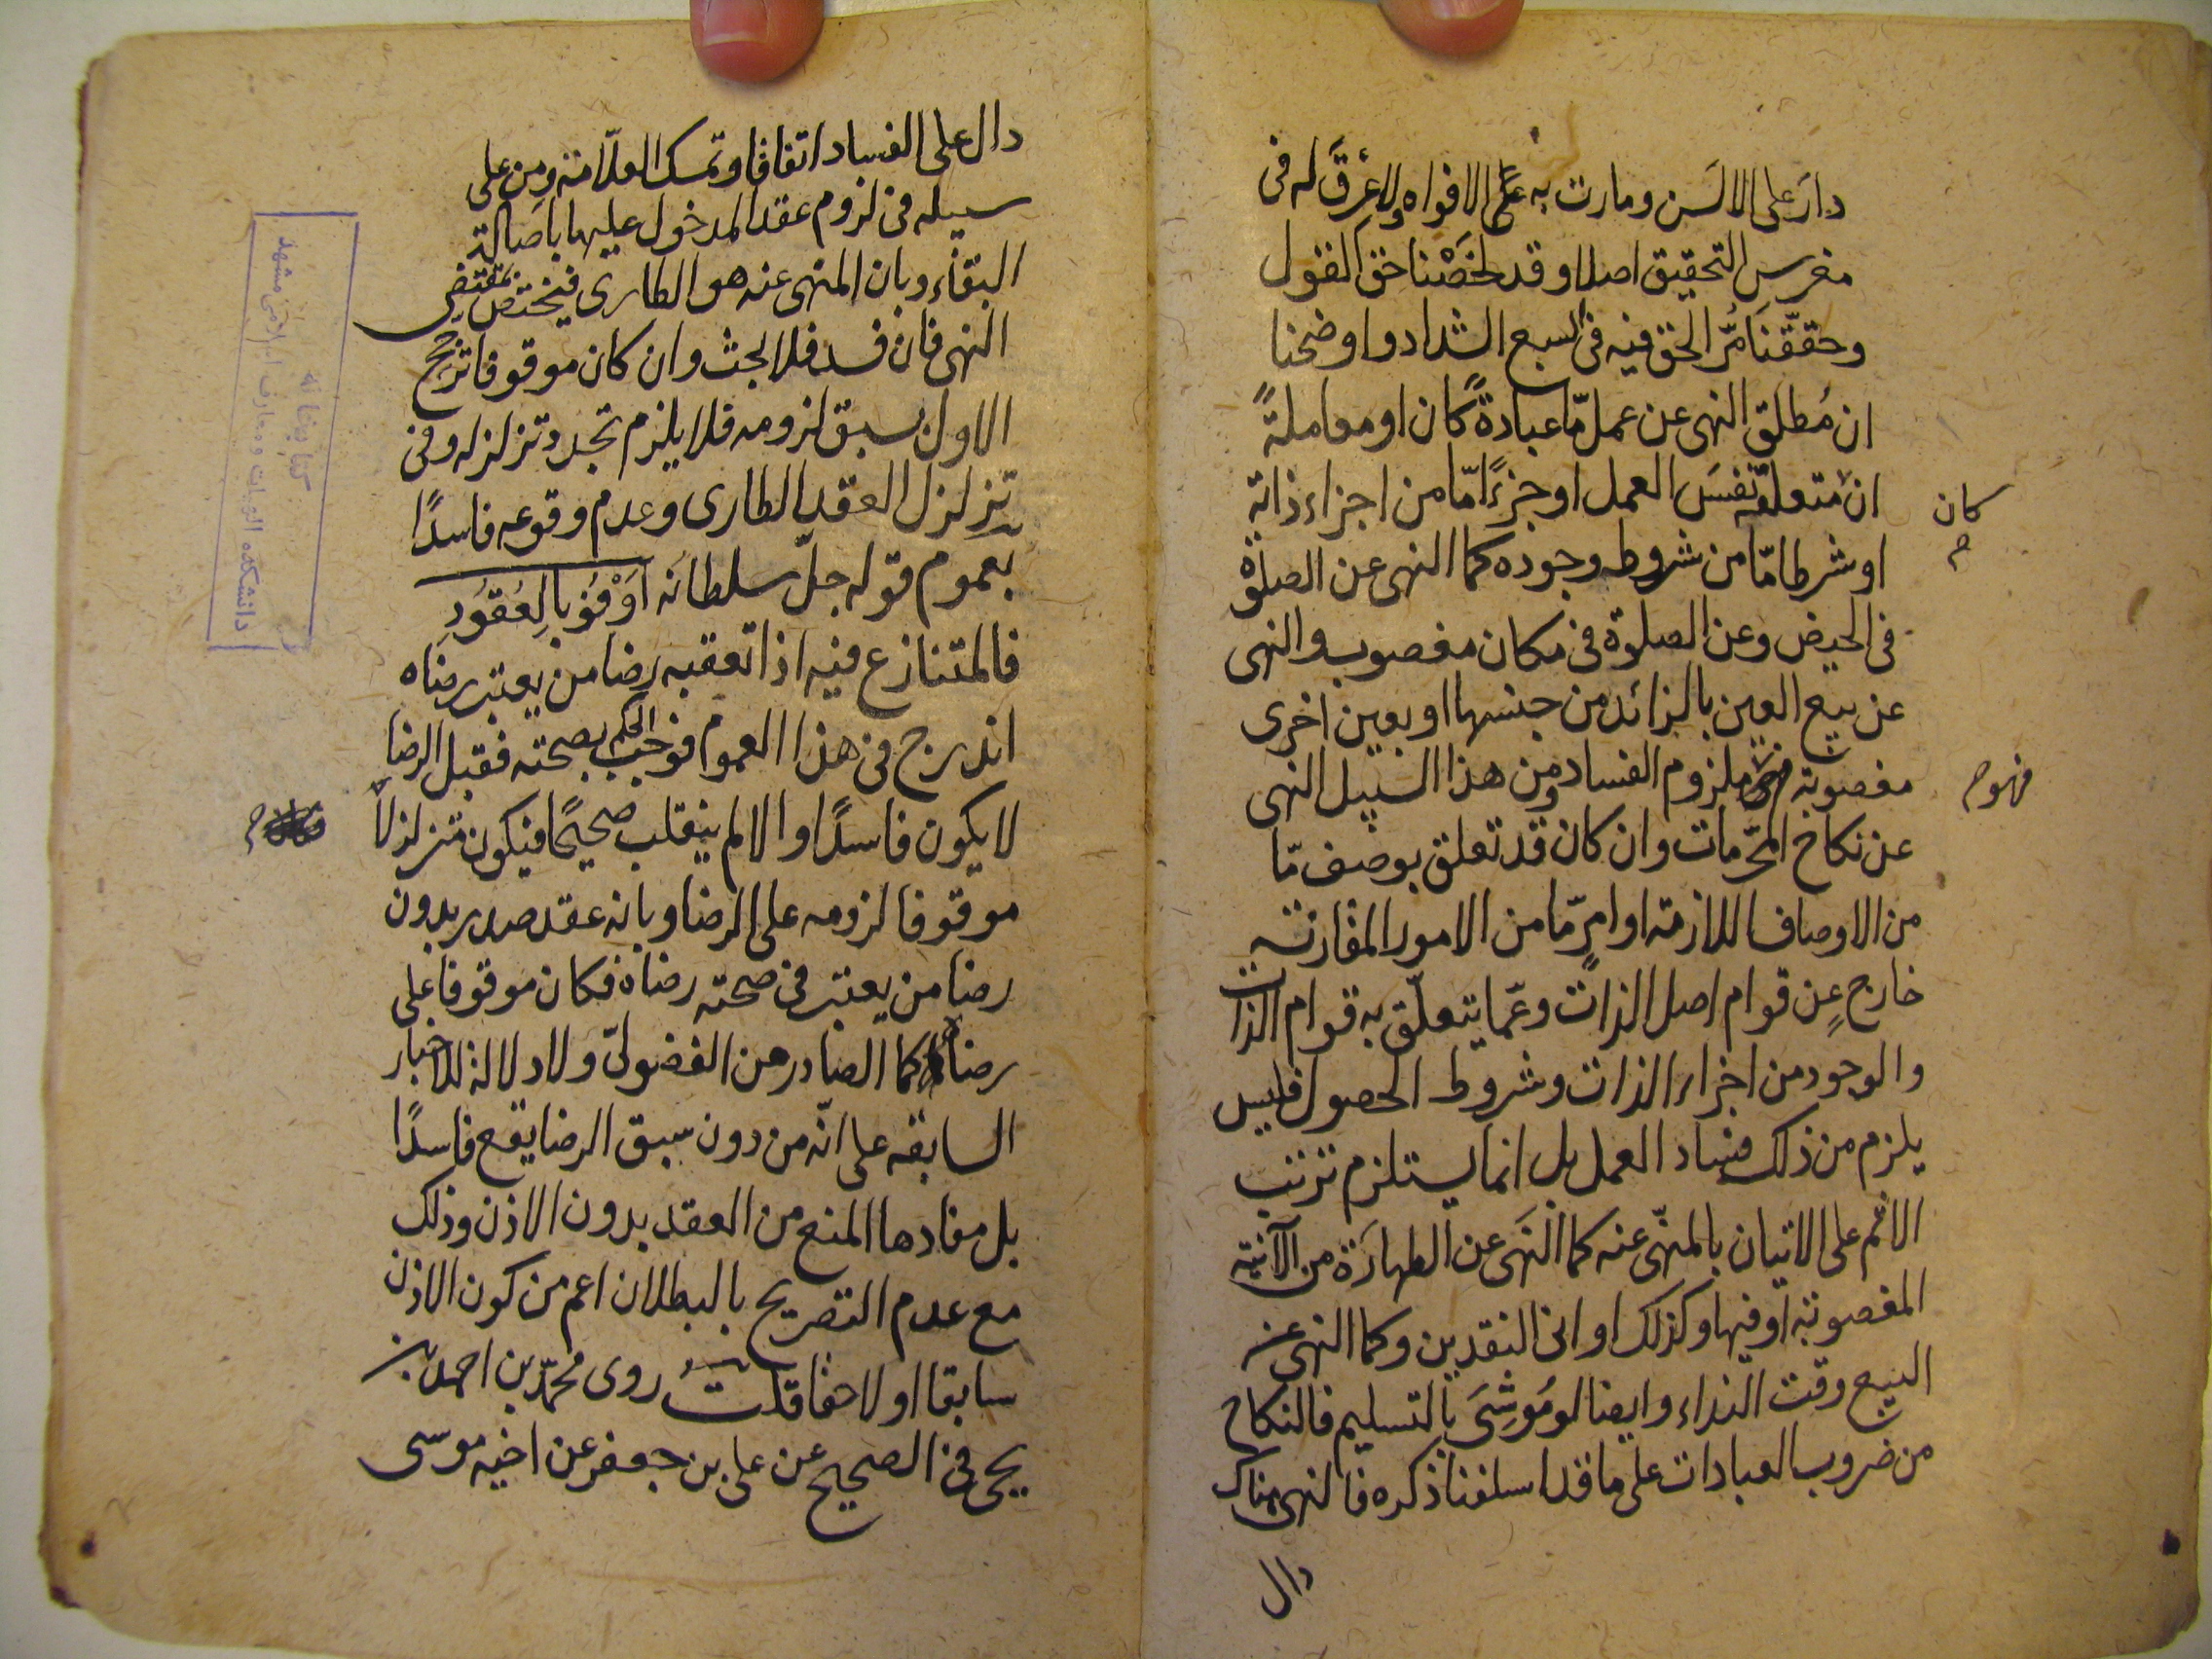 دارَ على الالسَن ومارت به على الافواه ولا عِرقَ له فى
مغرس التحقيق اصلا وقد لخصْنا حق القول
وحققّنا مُرَّ الحق فيه فى السبع الشداد واوضحنا
ان مُطلق النهى عن عمل مّا عبادةً كان او معاملةً
ان كان متعلقه نفسَ العمل او جزءًا مّا من اجزاء ذاته
او شرطا مّا من شروط وجوده كما النهى عن الصلوة
فى الحيض وعن الصلوة فى مكان مغصوب والنهى
عن بيع العين بالزائد من جنسها او بعين اخرى
مغصوبة فهو ملزوم الفساد ومن هذا السبيل النهى
عن نكاح المحرّمات وان كان قد تعلق بوصف مّا
من الاوصاف اللازمة او امرٍ مّا من الامور المقارنة
خارجٍ عن قوام اصل الذات وعمّا يتعلّق به قوام الذات
والوجود من اجزاء الذات وشروط الحصول فليس
يلزم من ذلك فساد العمل بل انما يستلزم ترتب
الاثم على الاتيان بالمنهّى عنه كما النَهى عن الطهارَة من الآنية
المغصوبة او فيها وكذلك اوانى النقدين وكما النهى عن
البيع وقت النداء وايضا لو مُوشِىَ بالتسليم فالنكاح
من ضروب العبادات على ما قد اسلفنا ذكره فالنهى هناك
دال
كان
فهو
دال على الفساد اتفاقا وتمسك العلّامة ومن على
سبيله فى لزوم عقد المدخول عليها باصالة
البقاء وبان المنهى عنه هو الطارى فيختص بمقتضى
النهى فان فسد فلا بحث وان كان موقوفا ترجح
الاول بسبق لزومه فلا يلزم تجدد تزلزله وفى
تزلزل العقد الطارى وعدم وقوعه فاسدًا
بعموم قوله جلّ سلطانه اَوْفُوا بِالعُقُودِ
فالمتنازع فيه اذا تعقبه رضا من يعتبر رضاه
اندرج فى هذا العموم فوجب الحكم بصحته فقبل الرضا
لا يكون فاسدًا والا لم ينقلب صحيحًا فيكون متزلزلاً
موقوفا لزومه على الرضا وبانه عقد صدر بدون
رضا من يعتبر فى صحته رضاه فكان موقوفا على
رضاه كما الصادر من الفضولىّ ولا دلالة للاخبار
السابقه على انّه من دون سبق الرضا يقع فاسدًا
بل مفادها المنع من العقد بدون الاذن وذلك
مع عدم التصريح بالبطلان اعم من كون الاذن
سابقا او لاحقا قلت روى محمّد بن احمد بن
يحيى فى الصحيح عن على بن جعفر عن اخيه موسى
كتابخانه
دانشكده الهيات ومعارف اسلامى مشهد